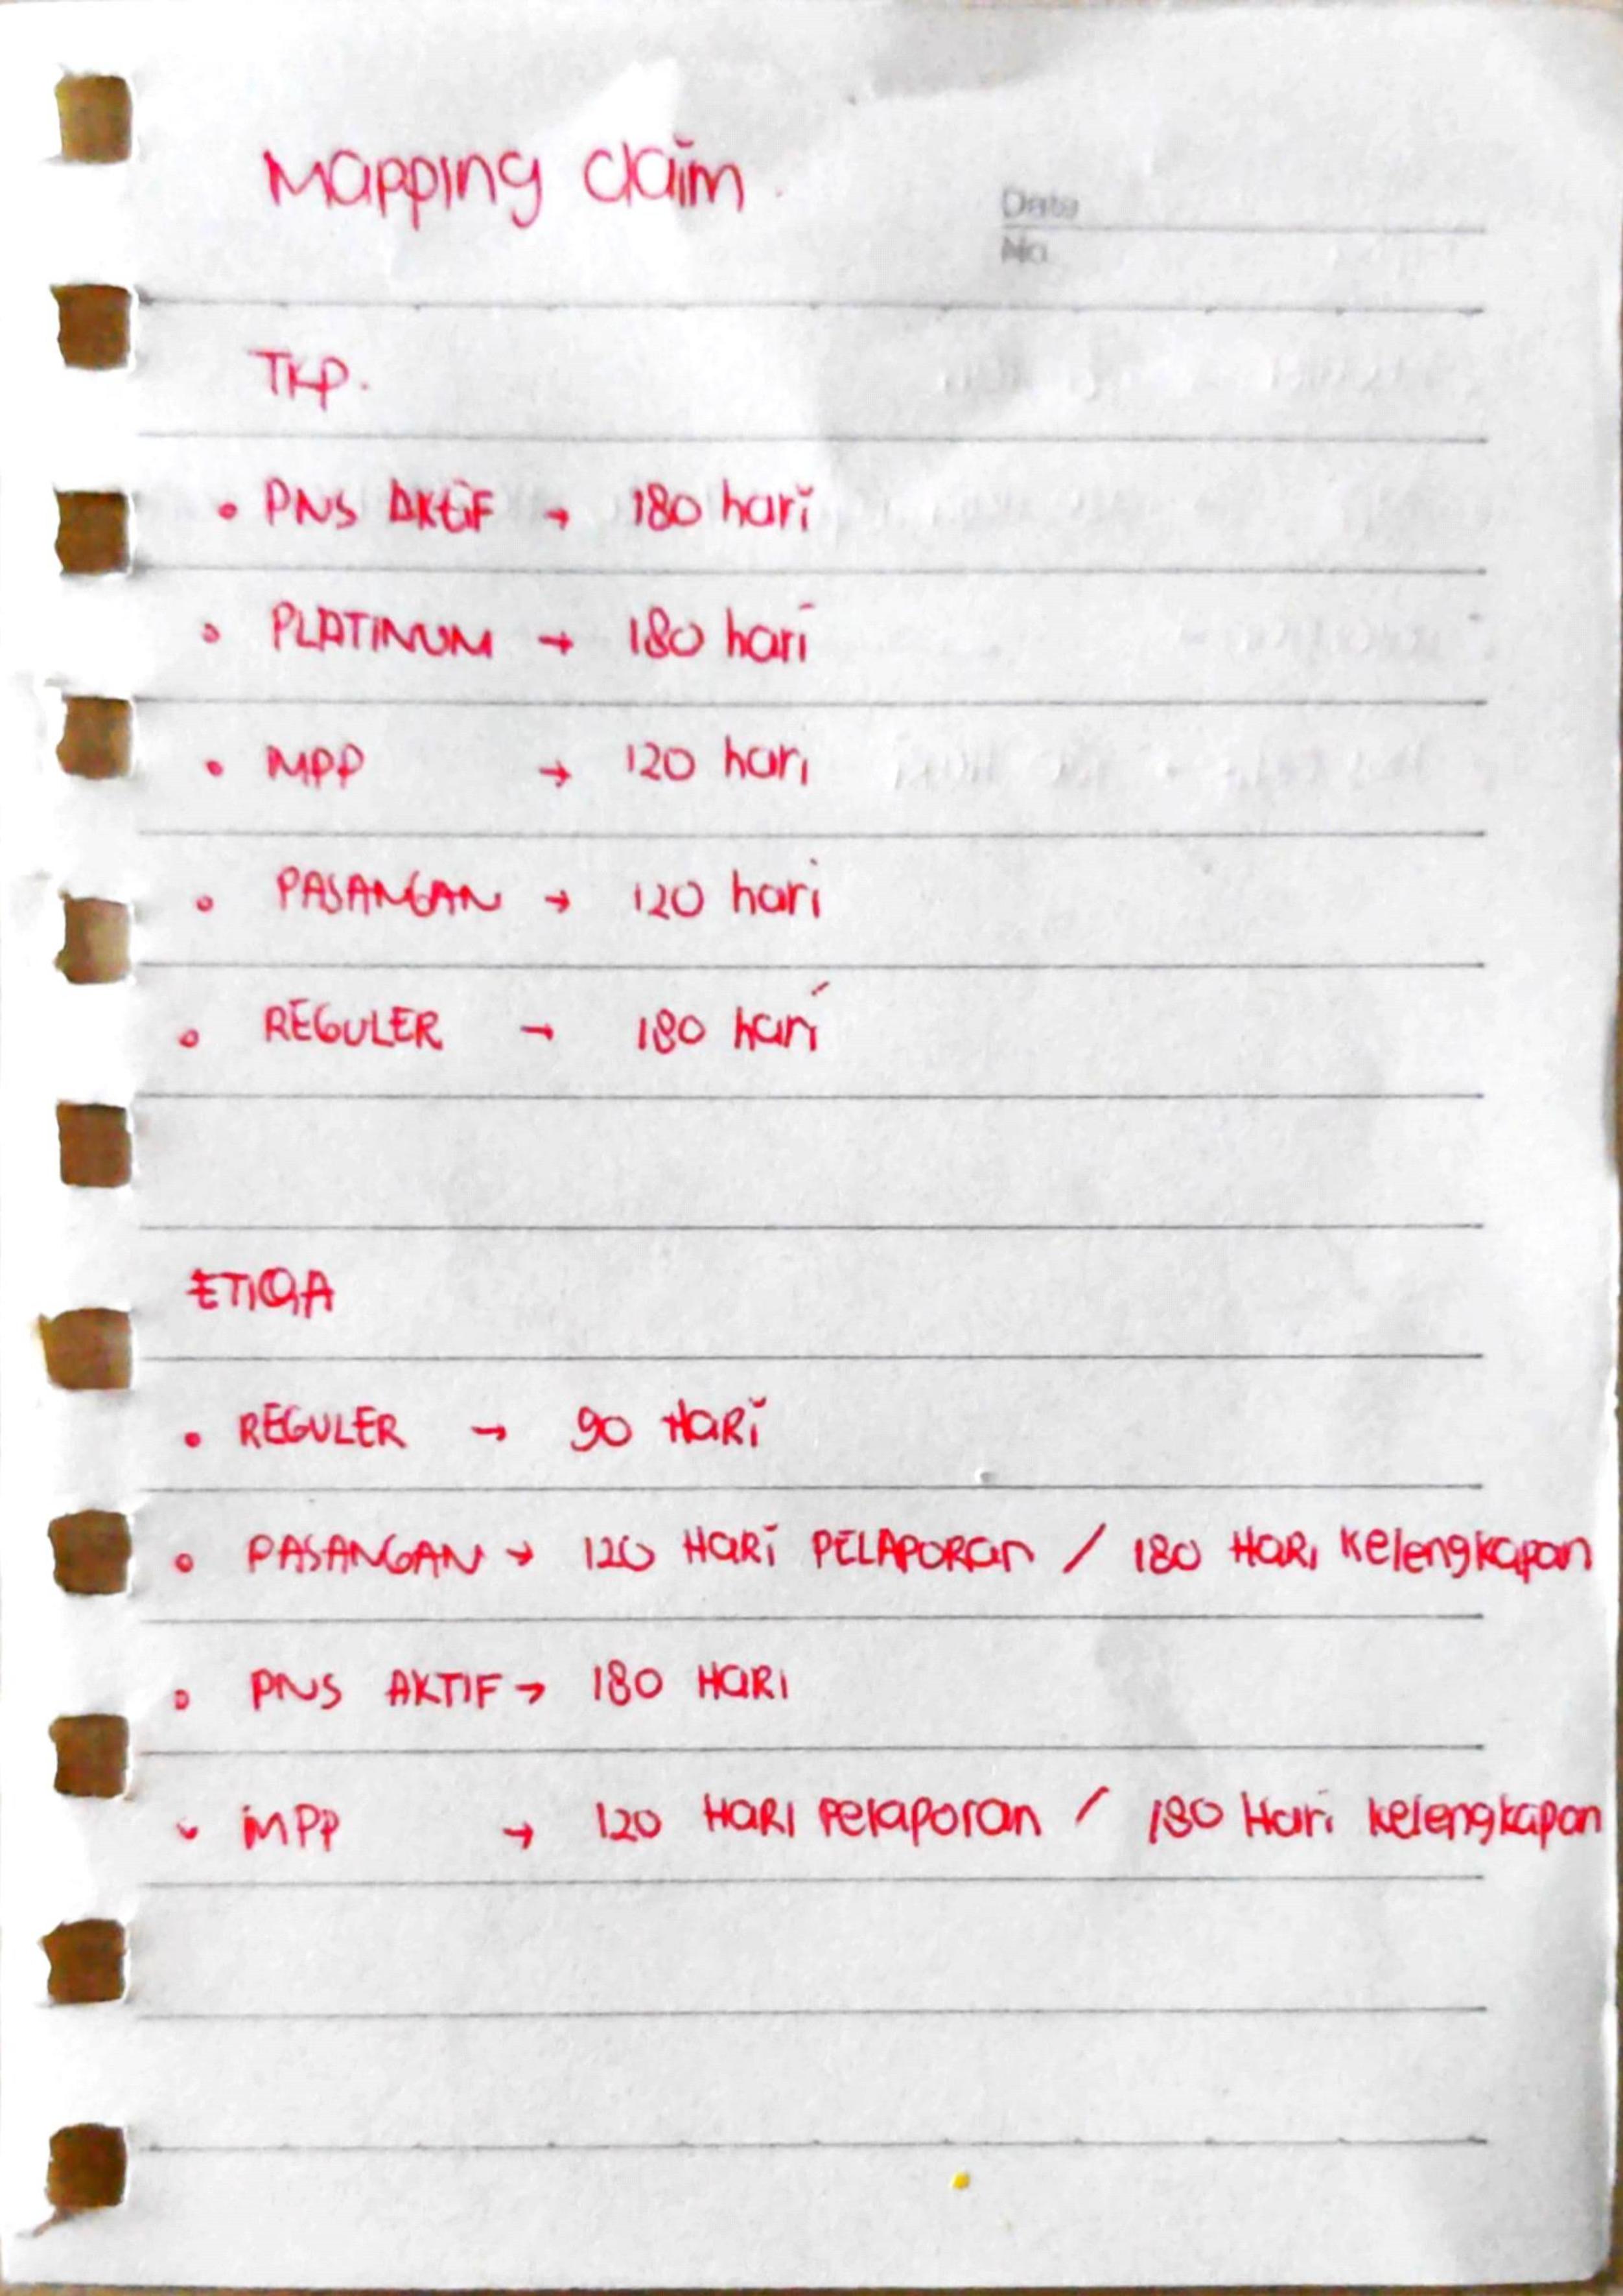 Mapping claim
Date
No
TKP.
• PNS AKtiF → 180 hari
• PLATINUM → 180 hari
• MPP → 120 hari
• PASANGAN → 120 hari
• REGULER → 180 hari
ETIQA
• REGULER → 90 HARi
• PASANGAN → 120 HARi PELAPORan / 180 HARI Kelengkapan
• PNS AKTIF → 180 HARI
• MPP → 120 HARI Pelaporan / 180 Hari kelengkapan